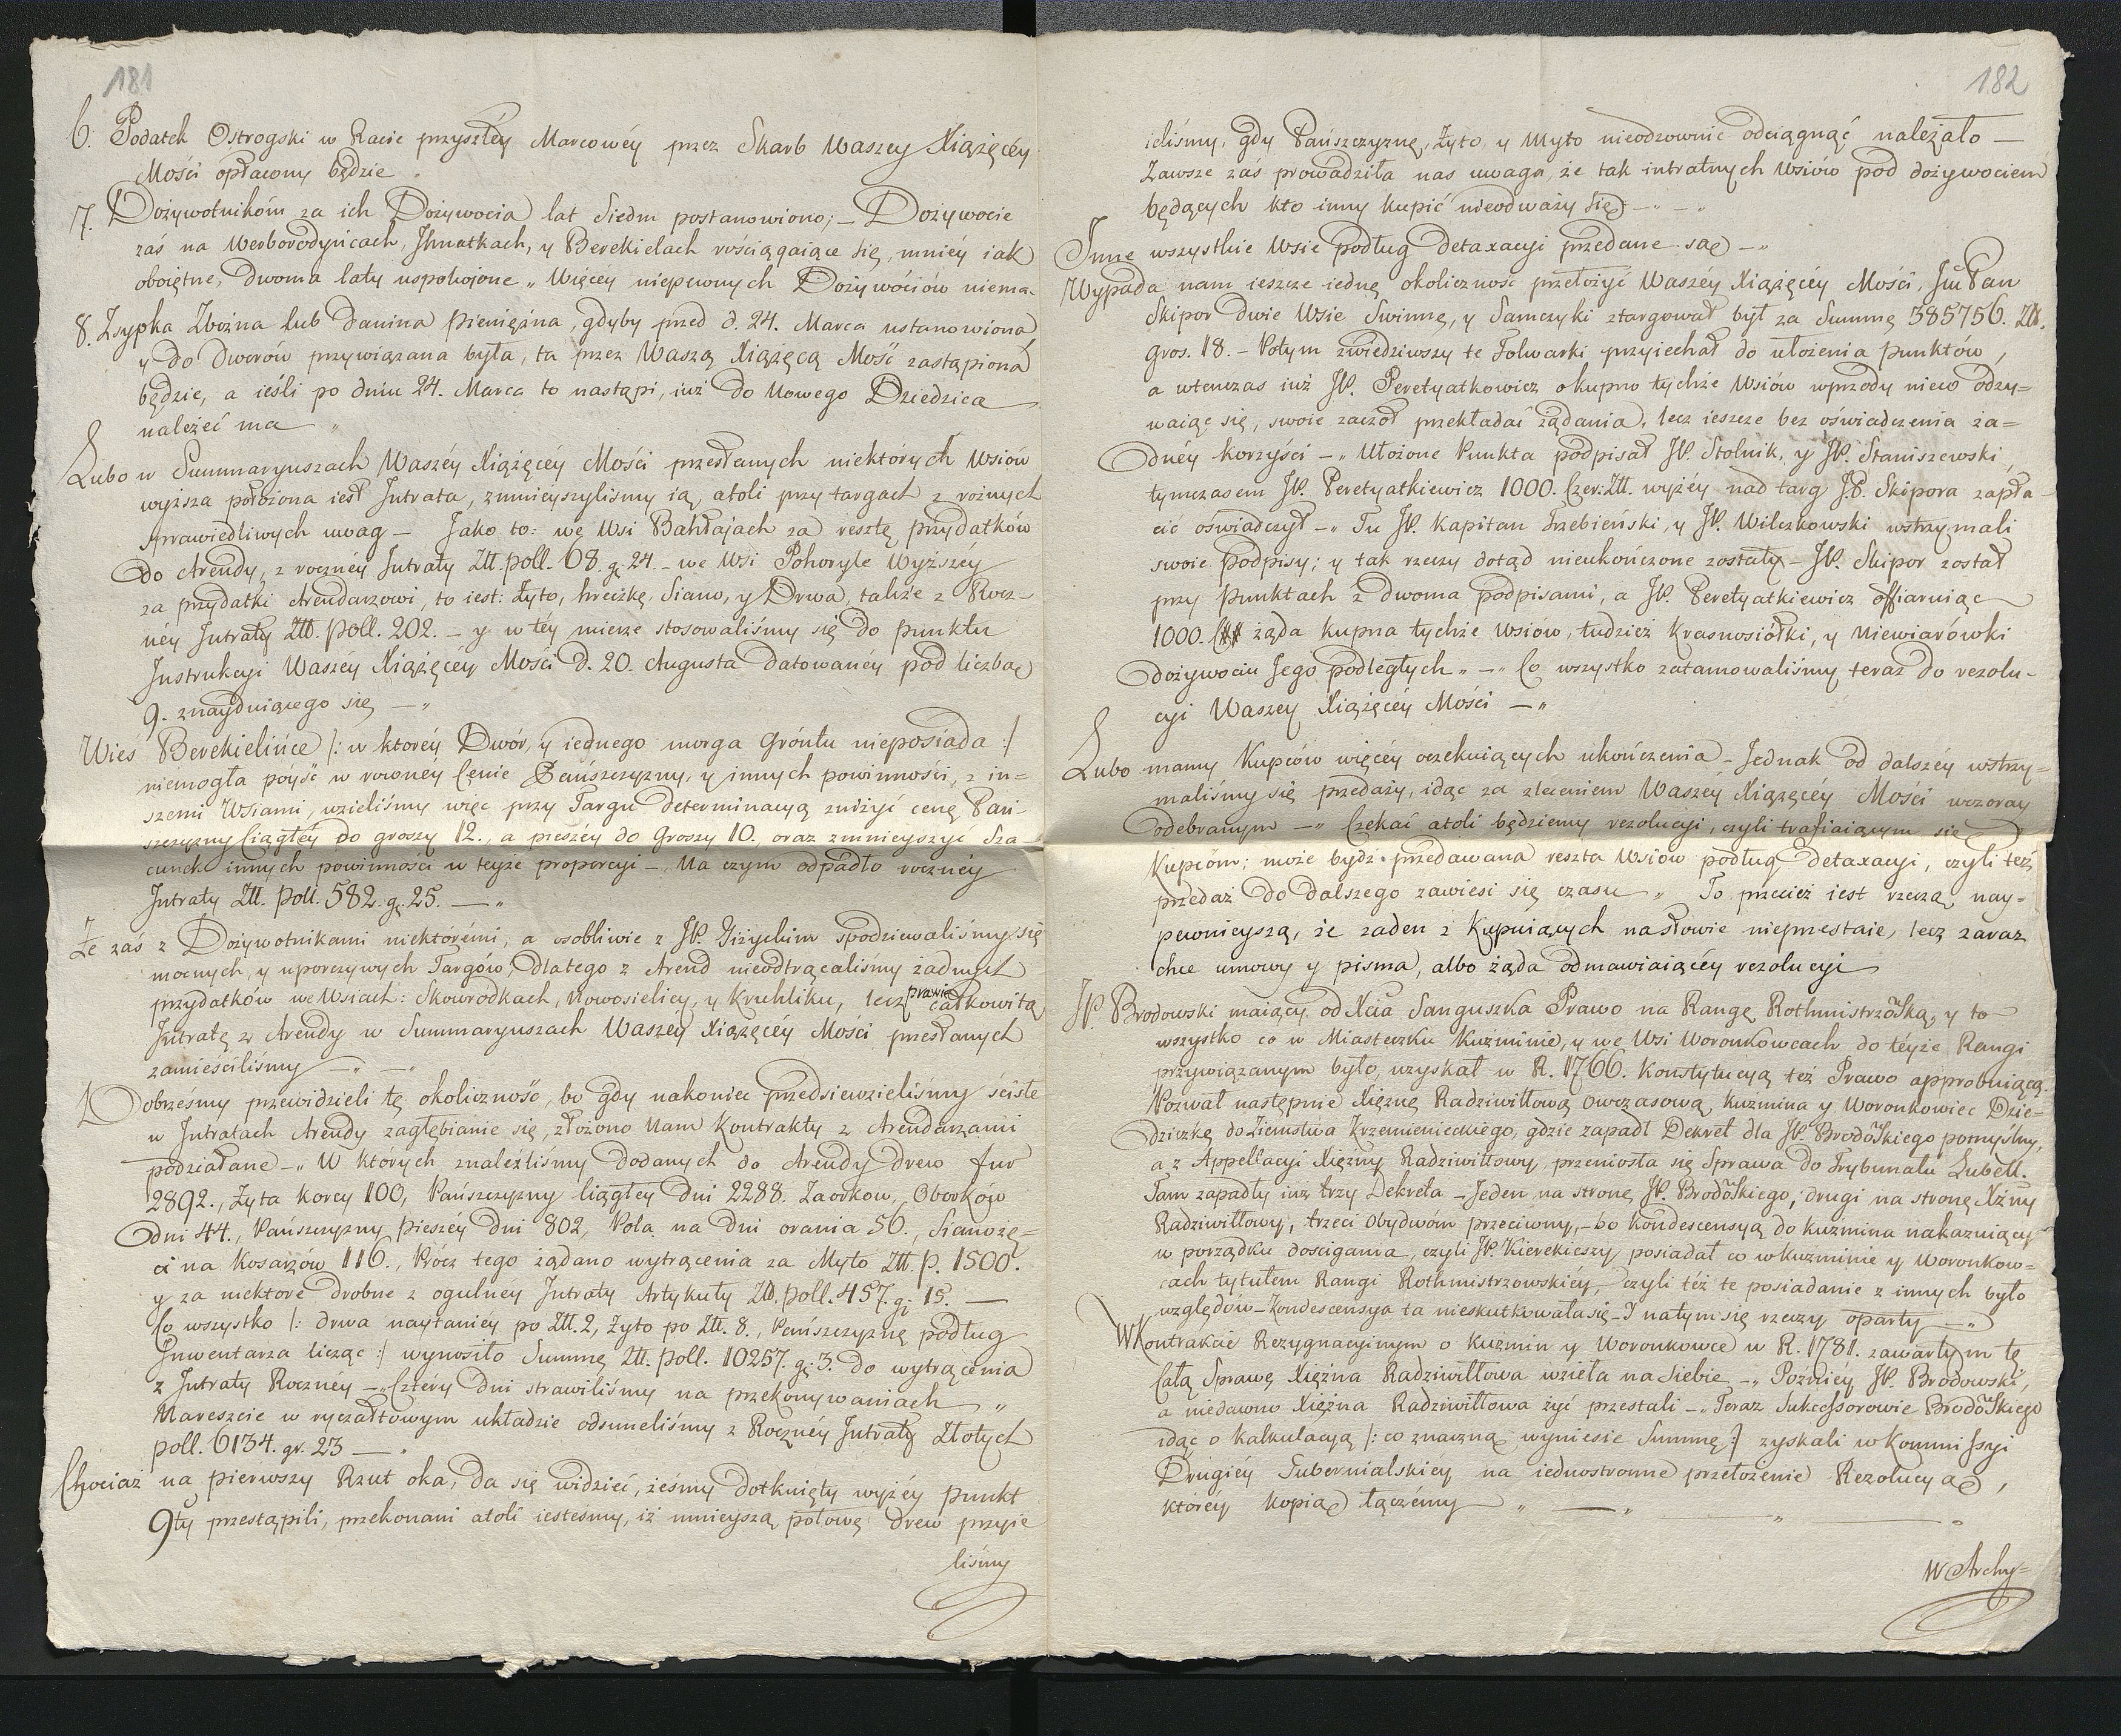 181
6. Podatek Ostrogski w Racie przyszłéy Marcowéy przez Skarb Waszey Xiążęcéy
Mości opłacony będzie
7. Dożywotnikóm za ich Dożywocia lat Siedm postanowiono; – Dożywocie
zaś na Werborodyńcach, Ihnatkach, y Berekielach rościągaiące się, mniéy iak
oboiętne, dwoma laty uspokojone „ Więcey niepewnych Dożywóciów niema.
8. Zsypka Zbożna lub Danina pieniężna, gdyby przed d. 24. Marca ustanowiona
y do Dworów przywiązana była, ta przez Waszą Xiążęcą Mość zastąpiona
będzie, a ieśli po dniu 24. Marca to nastąpi, iuż do Nowego Dziedzica
należeć ma „
Lubo w Summaryuszach Waszéy Xiążęcéy Mości przesłanych niektórych Wsiów
wyższa położona iest Intrata, zmnieyszyliśmy ią, atoli przy targach z rożnych
sprawiedliwych uwag – Jako to: we Wsi Bahłajach za resztę przydatków
do Arendy z rocznéy Intraty Złł. poll. 68. g. 24. – we Wsi Pohoryle Wyższéy
za przydatki Arendarzowi, to iest: Żyto, hreczkę, Siano, y Drwa, także z Rocz-
néy Intraty Złł. poll. 202. – y w téy mierze stosowaliśmy się do punktu
Instrukcyi Waszéy Xiążęcéy Mości D. 20. Augusta datowanéy pod liczbą
9. znayduiącego się – „
Wieś Berekielińce /: w ktoréy Dwór, y iednego morga Gróntu nieposiada :/
niemogła póyść w rownéy Cenie Pańszczyzny, y innych powinności, z in=
szemi Wsiami, uzieliśmy więc przy Targu determinacyą zniżyć cenę Pań-
szczyzny Ciągłéy do groszy 12., a pieszéy do Groszy 10., oraz zmnieyszyć Sza-
cunek innych powinności w teyże proporcyi – „ Na czym odpadło rocznéy
Intraty Złł. poll. 582. g. 25. – „
Że zaś z Dożywotnikami niektóremi, a osobliwie z JP. Giżyckim spodziewaliśmy się
mocnych, y uporczywych Targów, dlatego z Arend nieodtrącaliśmy żadnych
przydatków we Wsiach: Skowródkach, Nowosielicy, y Kruhliku, lecz prawie całkowitą
Intratę z Arendy w Summaryuszach Waszéy Xiążęcéy Mości przesłanych
zamieściliśmy – „ – „
Dobrześmy przewidzieli tę okoliczność, bo gdy nakoniec przedsiewzieliśmy ściśle
w Intratach Arendy zagłębianie się, złożono Nam Kontrakty z Arendarzami
podziałane – „ W których znaleźliśmy dodanych do Arendy drew fur
2892., Żyta korcy 100, Pańszczyzny Ciągłéy Dni 2288. Zaorkow, Oborków
Dni 44., Pańszczyzny pieszéy Dni 802, Pola na Dni orania 56., Sianożę=
ci na Kosarzów 116., Prócz tego żądano wytrącenia za Myto Złł. p. 1500.
y za niektóre drobne z ogulnéy Intraty Artykuły Złł. poll. 457. g. 15. –
Co wszystko /: drwa naytaniéy po Złł. 2, Żyto po Złł. 8., Pańszczyznę podług
Inwentarza licząc :/ wynosiło Summę Złł. poll. 10257. g. 3. do wytrącenia
z Intraty Rocznéy – „ Cztéry Dni strawiliśmy na przekonywaniach „
Nareszcie w ryczałtowym układzie odsuneliśmy z Rocznéy Intraty Złotych
poll. 6134. gr. 23 – „
Chociaż na pierwszy Rzut oka, da się widzieć, żeśmy dotknięty wyżéy punkt
9ty przestąpili, przekonani atoli iestesmy, iż mnieyszą połowę drew przyie
liśmy
182
ieliśmy, gdy Pańszczyznę, Żyto, y Myto nieodzownie odciągnąć należało –
Zawsze zaś prowadziła nas uwaga, że tak intratnych Wsiów pod dożywociem
będących kto inny kupić nieodważy się – „ – „
Inne wszystkie Wsie podług detaxacyi przedane są – „
Wypada nam ieszcze iednę okoliczność przełożyć Waszéy Xiążęcéy Mości, Jm Pan
Skipor dwie Wsie Swinnę, y Samczyki ztargował był za Summę 385756. Złł.
gros. 18. – Potym zwiedziwszy te Folwarki przyiechał do ułożenia punktów,
a wtenczas iuż JP. Peretyatkowicz o kupno tychże Wsiów wprzody nieco odzy=
waiąc się, swoie zaczoł przekładać żądania, lecz ieszcze bez oświadczenia ża=
dnéy korzyści – „ Ułożone Punkta podpisał JP. Stolnik, y JP. Staniszewski,
tymczasem JP. Peretyatkiewicz 1000. Czer: Złł. wyżéy nad targ JP. Skipora zapła-
cić oświadczył – „ Tu JP. Kapitan Trzebieński, y JP. Wilczkowski wstrzymali
swoie podpisy; y tak rzeczy dotąd nieukończone zostały – JP. Skipor został
przy Punktach z dwoma podpisami, a JP. Peretyatkiewicz offiaruiąc
1000. żąda kupna tychże Wsiów, tudzież Krasnosiółki, y Niewiarówki
dożywociu Jego podległych „ – „ Co wszystko zatamowaliśmy teraz do rezolu-
cyi Waszey Xiążęcéy Mości – „
Lubo mamy Kupców więcéy oczekuiących ukończenia – Jednak od dalszéy wstrzy=
maliśmy się przedaży, idąc za zleceniem Waszéy Xiążęcéy Mości wczoray
odebranym – „ Czekać atoli będziemy rezolucyi, czyli trafiaiącym się
Kupcóm; może bydź przedawana reszta Wsiów podług detaxacyi, czyli też
przedaż do dalszego zawiesi się czasu „ To przecież iest rzeczą nay-
pewnieyszą, że żaden z Kupuiących na słowie nieprzestaie, lecz zaraz
chce umowy y pisma, albo żąda odmawiaiącéy rezolucyi
JP. Brodowski maiący od Xcia Sanguszka Prawo na Rangę Rothmistrzoską, y to
wszystko co w Miasteczku Kuźminie, y we Wsi Woronkowcach do téyże Rangi
przywiązanym było, uzyskał w R. 1766. Konstytucyą też Prawo approbuiącą.
Pozwał następnie Xiężnę Radziwiłłową owczasową Kuźmina y Woronkowiec Dzie=
dziczkę do Ziemstwa Krzemienieckiego, gdzie zapadł Dekret dla JP. Brodoskiego pomyślny,
a z Appellacyi Xiężny Radziwiłłowy przeniosła się Sprawa do Trybunału Lubell.
Tam zapadły iuż trzy Dekreta – Jeden na stronę JP. Brodoskiego, drugi na stronę Xżny
Radziwiłłowy, trzeci obydwóm przeciwny, – bo kondescensyą do Kuźmina nakazuiący
w porządku dościgania, czyli JP. Kierekieszy posiadał co w Kuzminie y Woronkow=
cach tytułem Rangi Rothmistrzowskiéy, czyli téż te posiadanie z innych było
względów – Kondescensya ta nieskutkowała się – I natym się rzeczy oparły – „
W Kontrakcie Rezygnacyinym o Kuźmin y Woronkowce w R. 1781. zawartym tę
Całą Sprawę Xiężna Radziwiłłowa wzieła na Siebie – „ Poźniéy JP. Brodowski,
a niedawno Xiężna Radziwiłłowa żyć przestali – „ Teraz Sukcessorowie Brodoskiego
idąc o kalkulacyą /: co znaczną wyniesie Summę :/ zyskali w Kommissyi
Drugiéy Gubernialskiey na iednostronne przełożenie Rezolucyą,
któréy kopią łączémy „ – „ – „ –
W Archy=